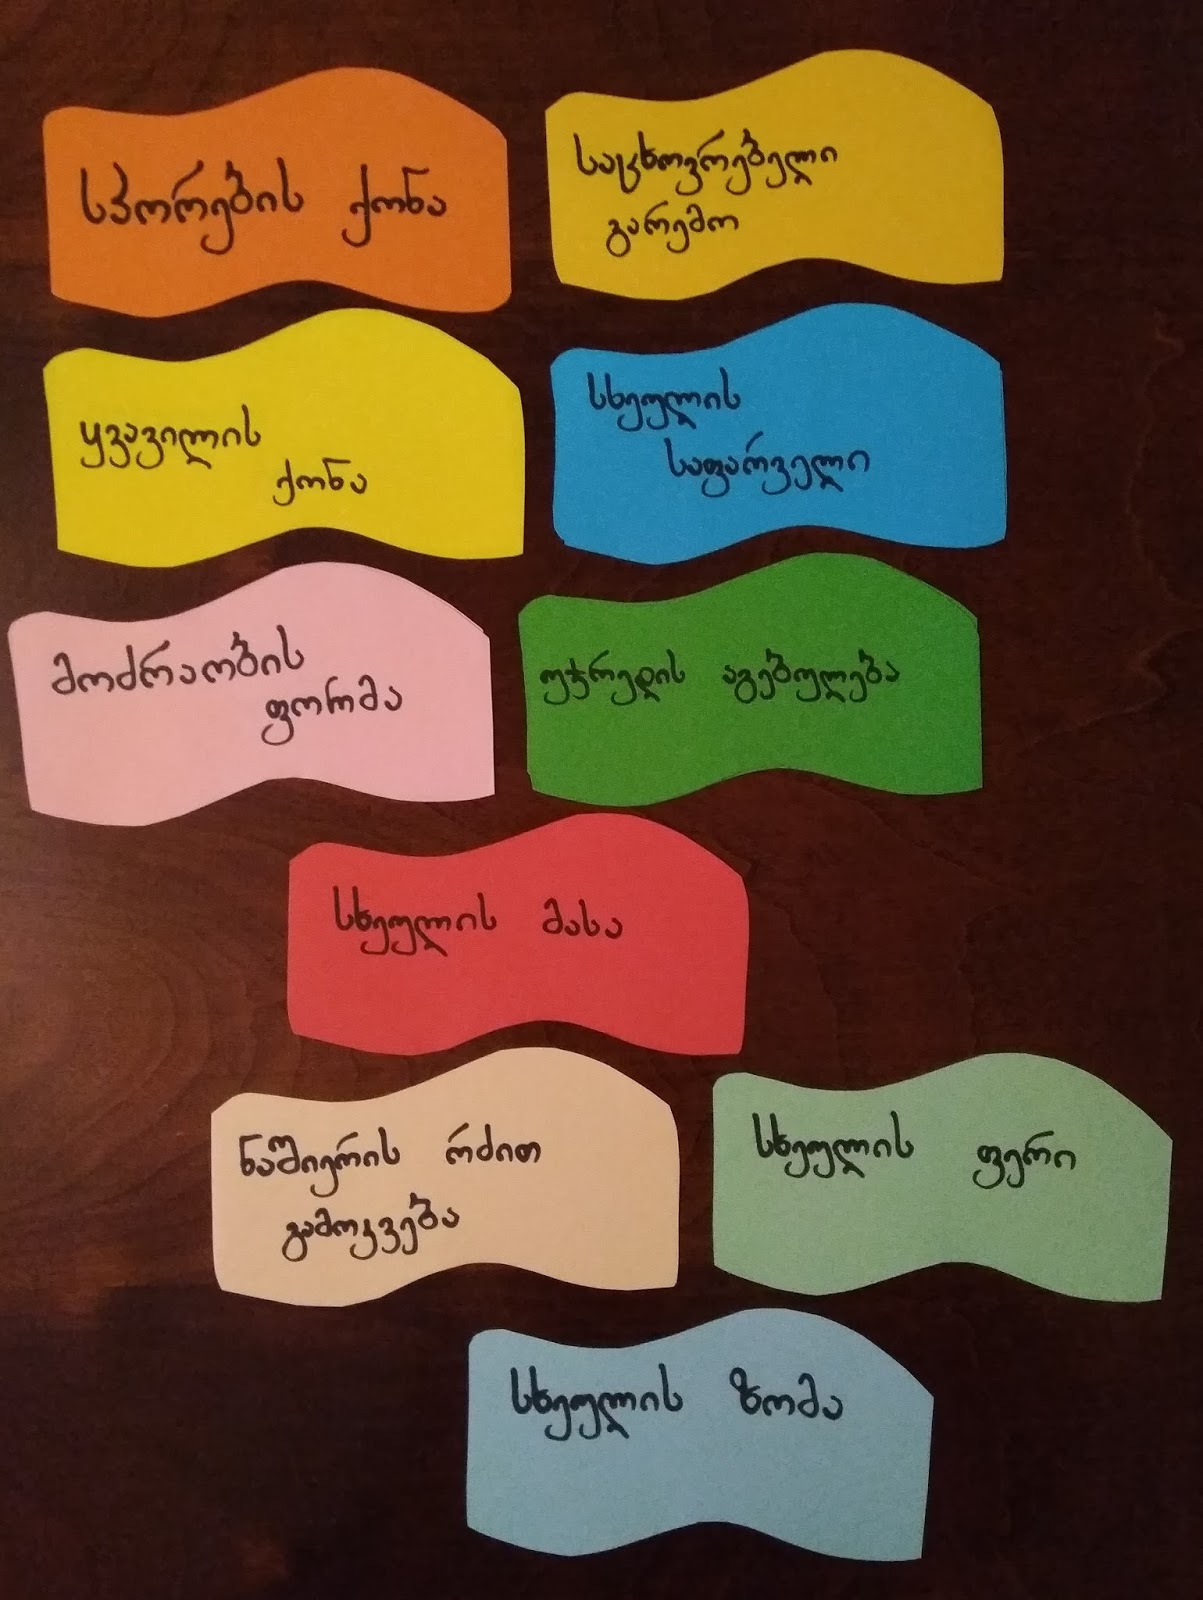 სპორების ქონა
საცხოვრებელი
გარემო
ყვავილის
ქონა
სხეულის
საფარველი
მოძრაობის
ფორმა
უჯრედის აგებულება
სხეულის მასა
ნაშიერის რძით
გამოკვება
სხეულის ფერი
სხეულის ზომა